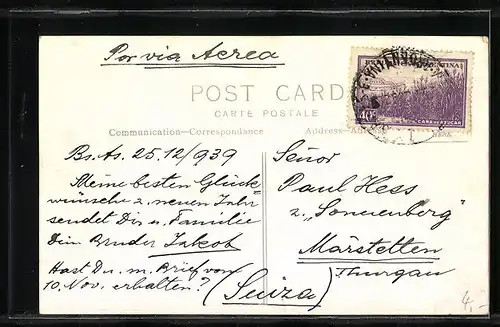 Por via Aerea
POST CARD
CARTE POSTALE
Communication—Correspondance
Address—
HERE
REP. ARGENTINA
40c
CAÑA DE AZUCAR
Bs. As. 25. 12/939
Meine besten Glück-
wünsche z. neuen Jahr
sendet Dir u. Familie
Dein Bruder Jakob
Hast Du m. Brief vom
10 Nov. erhalten?
Señor
Paul Hess
z. „Sonnenberg"
Märstetten
Thurgau
(Suiza)
4,-